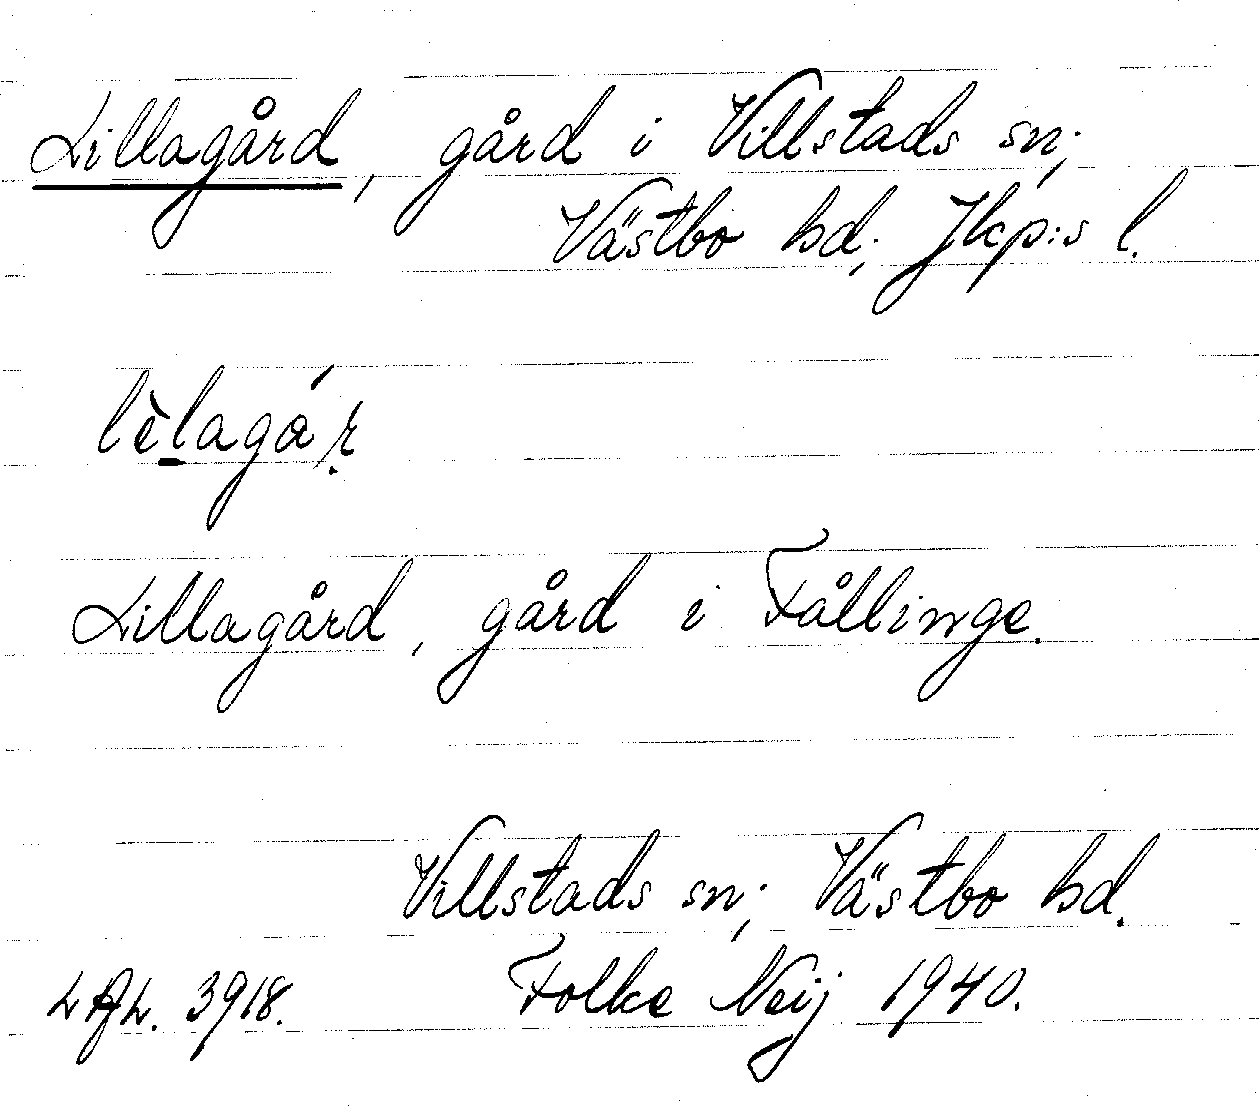 Lillagård, gård i Villstads sn;
Västbo hd; Jkp:s l.
lèlagáṛ
Lillagård, gård i Fållinge.
Villstads sn; Västbo hd.
3918. Folke Neij 1940.